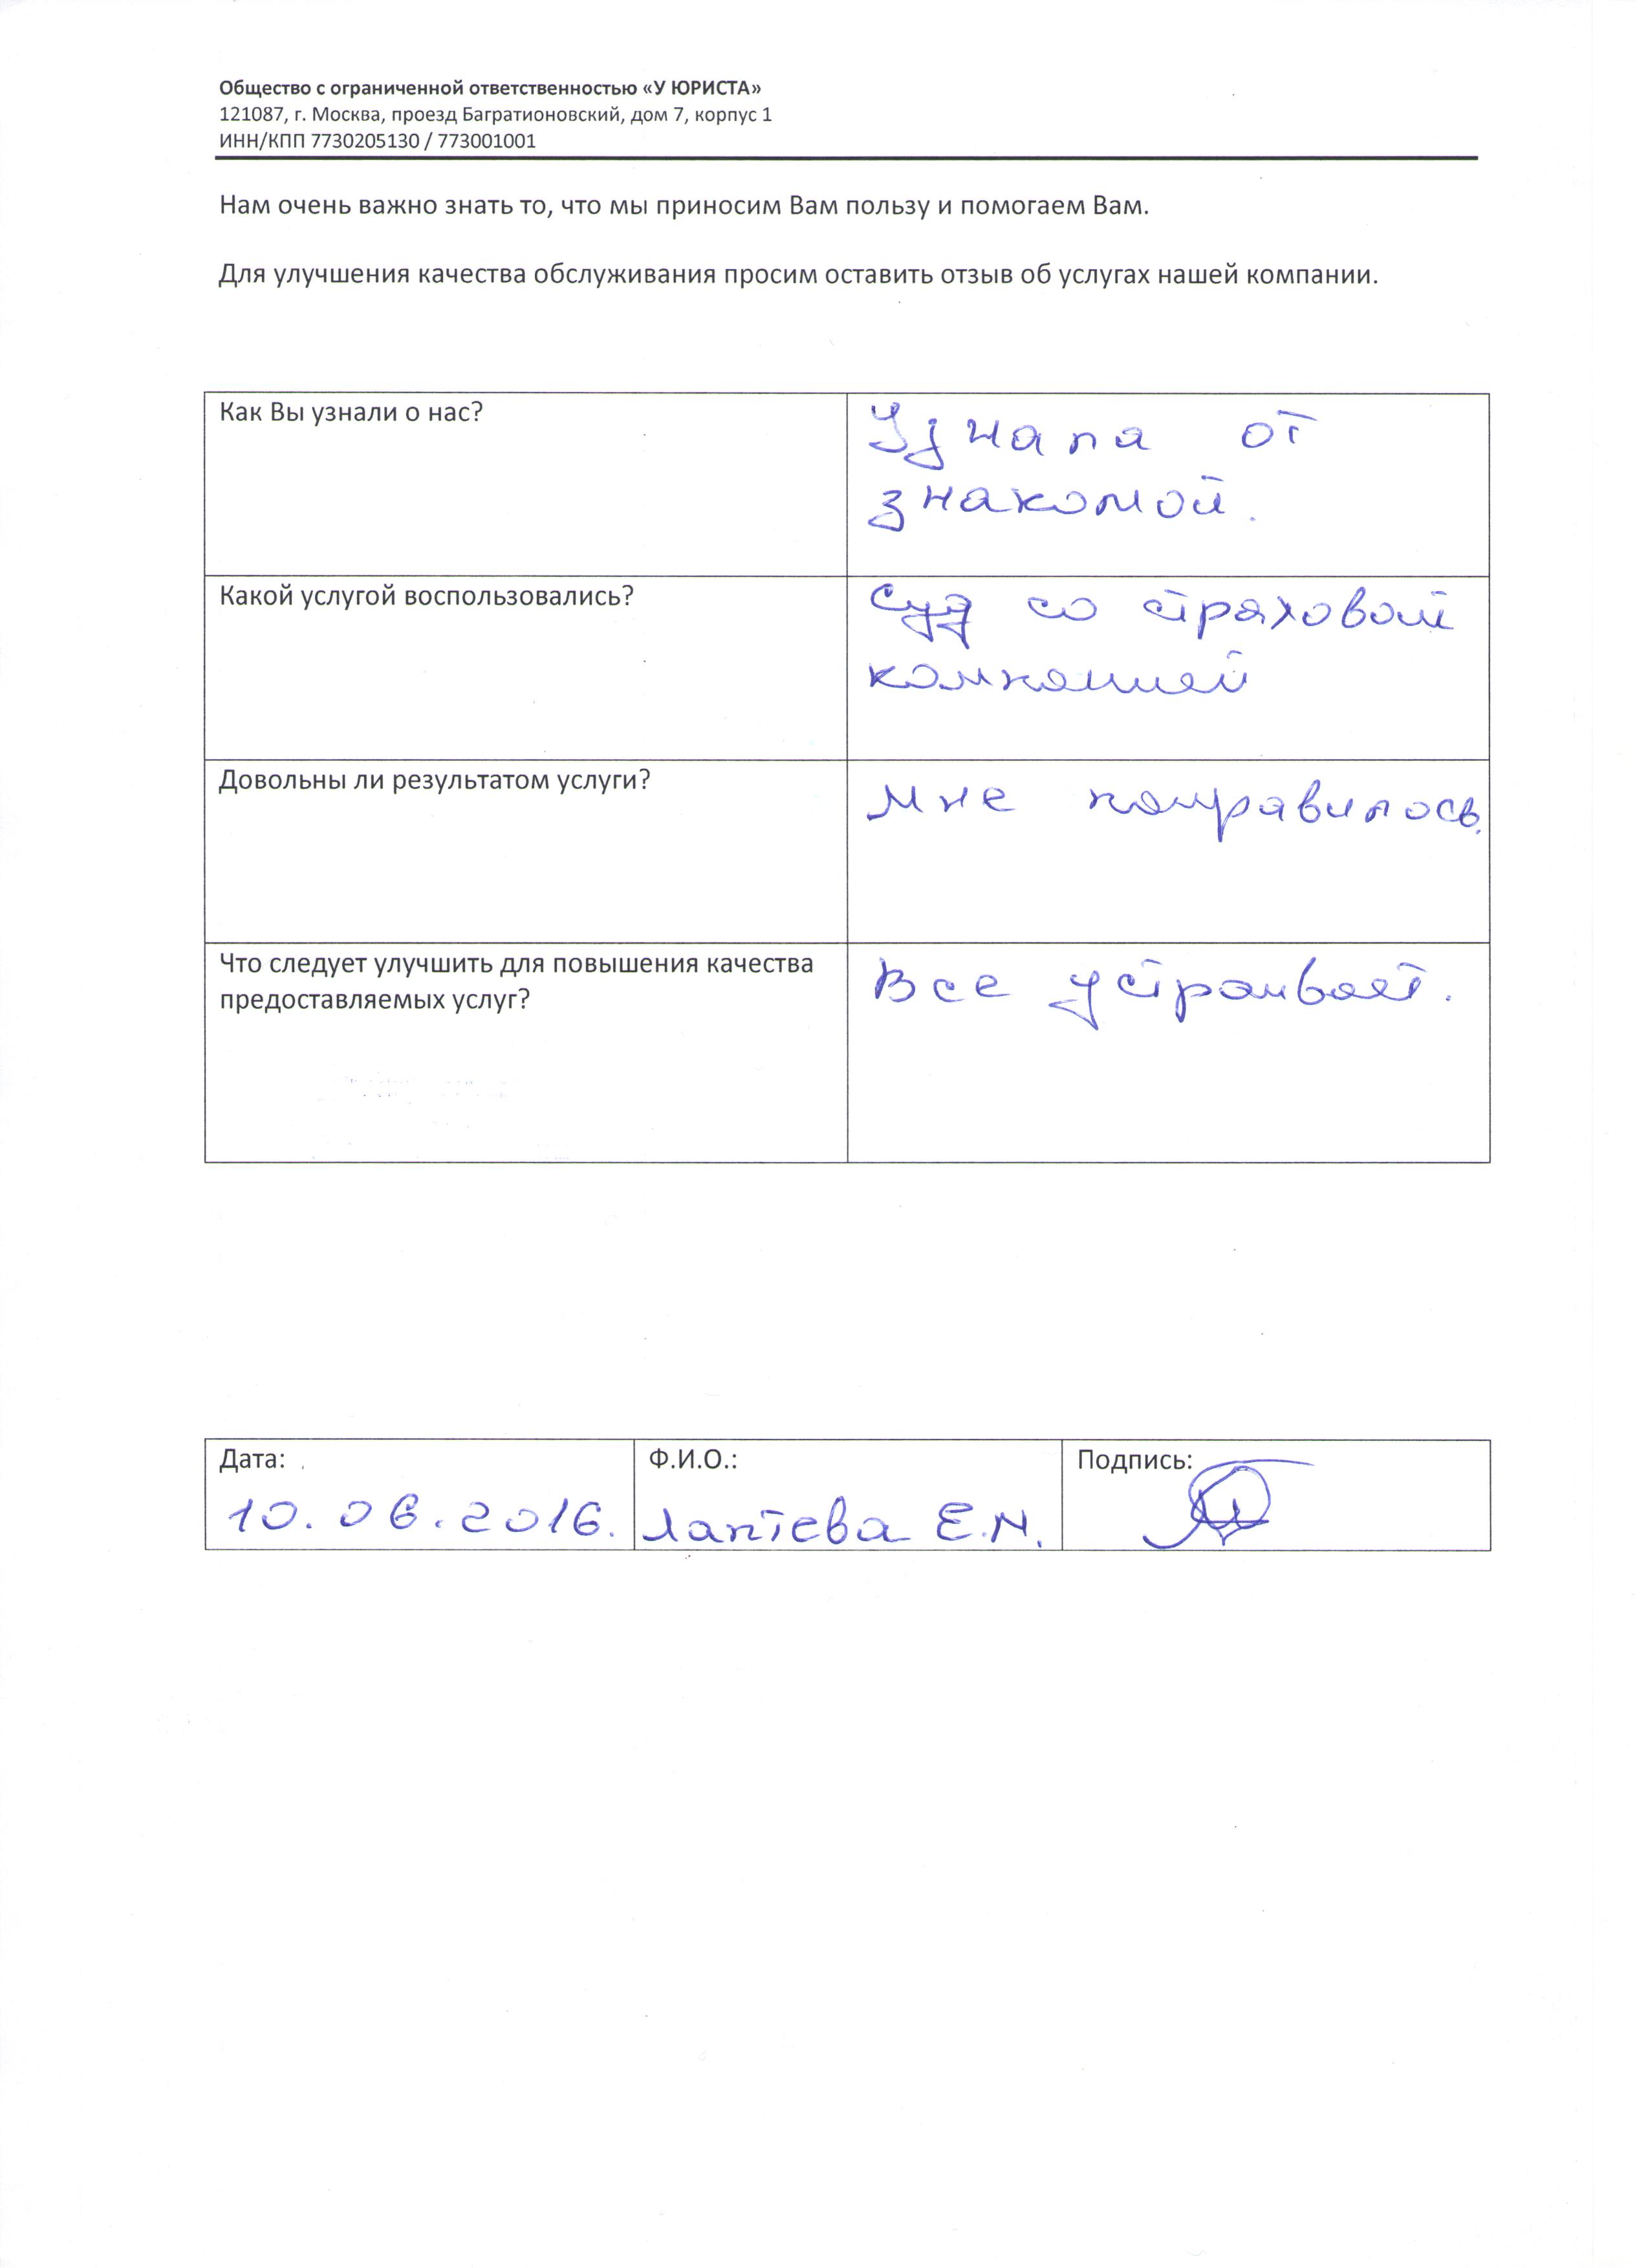 Общество с ограниченной ответственностью «У ЮРИСТА»
121087, г. Москва, проезд Багратионовский, дом 7, корпус 1
ИНН/КПП 7730205130 / 773001001
Нам очень важно знать то, что мы приносим Вам пользу и помогаем Вам.
Для улучшения качества обслуживания просим оставить отзыв об услугах нашей компании.
Как Вы узнали о нас?
Узнала от
знакомой.
Какой услугой воспользовались?
Суд со страховой
компанией
Довольны ли результатом услуги?
Мне понравилось.
Что следует улучшить для повышения качества
предоставляемых услуг?
Все устраивает.
Дата:
10.06.2016.
Ф.И.О.:
Лаптева Е.М.
Подпись: